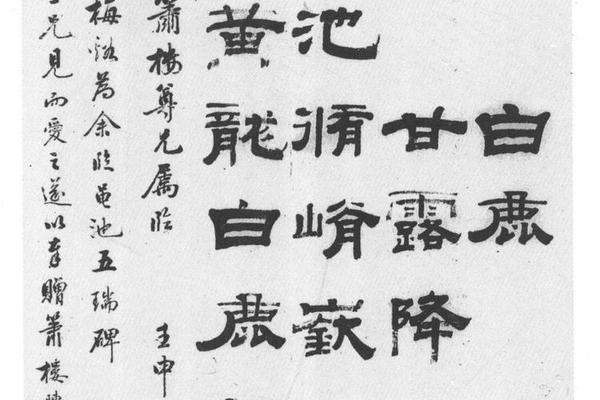 白鹿
甘露降
池脩崤嶔
黃龍白鹿
蕭樓尊兄屬臨 壬申
梅谿為余臨黽池五瑞碑
兄見而愛之遂以奉贈蕭樓